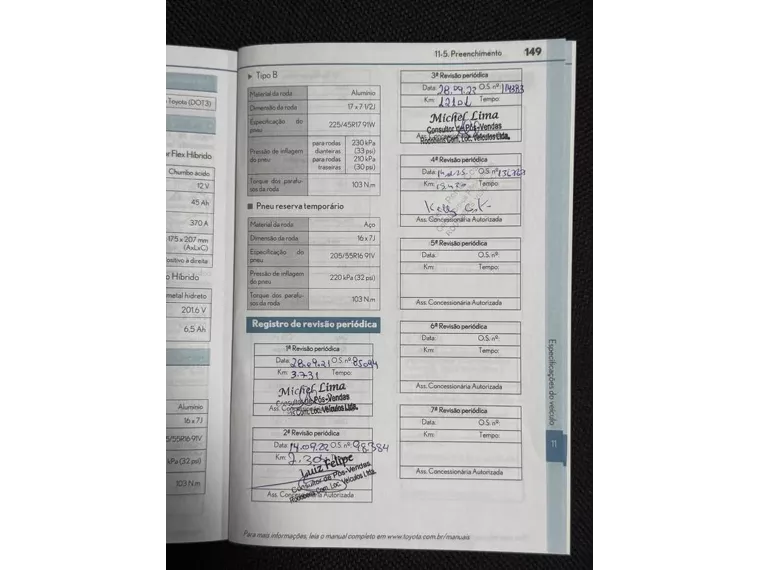 11-5. Preenchimento 149
Toyota (DOT3)
Flex Híbrido
Chumbo ácido
12 V
45 Ah
370 A
175 x 207 mm
(AxLxC)
positivo à direita
o Híbrido
metal hidreto
201.6 V
6,5 Ah
Alumínio
16 x 7J
5/55R16 91V
kPa (32 psi)
103 N.m
▶ Tipo B
Material da roda Alumínio
Dimensão da roda 17 x 7 1/2J
Especificação do pneu 225/45R17 91W
Pressão de inflagem do pneu
para rodas dianteiras 230 kPa (33 psi)
para rodas traseiras 210 kPa (30 psi)
Torque dos parafusos da roda 103 N.m
■ Pneu reserva temporário
Material da roda Aço
Dimensão da roda 16 x 7J
Especificação do pneu 205/55R16 91V
Pressão de inflagem do pneu 220 kPa (32 psi)
Torque dos parafusos da roda 103 N.m
Registro de revisão periódica
1ª Revisão periódica
Data: 28.09.21 O.S. nº: 85094
Km: 3.731 Tempo:
Michel Lima
Consultor de Pós-Vendas
Com. Loc. Veículos Ltda.
2ª Revisão periódica
Data: 14.09.22 O.S. nº: 98384
Km:
Luiz Felipe
Consultor de Pós-Vendas
Rodobens Com. Loc. Veículos Ltda.
Ass. Concessionária Autorizada
3ª Revisão periódica
Data: 28.09.23 O.S. nº: 114383
Km: Tempo:
Michel Lima
Consultor de Pós-Vendas
Rodobens Com. Loc. Veículos Ltda.
4ª Revisão periódica
Data: O.S. nº:
Km: Tempo:
Kelly
Ass. Concessionária Autorizada
5ª Revisão periódica
Data: O.S. nº:
Km: Tempo:
Ass. Concessionária Autorizada
6ª Revisão periódica
Data: O.S. nº:
Km: Tempo:
Ass. Concessionária Autorizada
7ª Revisão periódica
Data: O.S. nº:
Km: Tempo:
Ass. Concessionária Autorizada
Especificações do veículo
11
Para mais informações, leia o manual completo em www.toyota.com.br/manuais